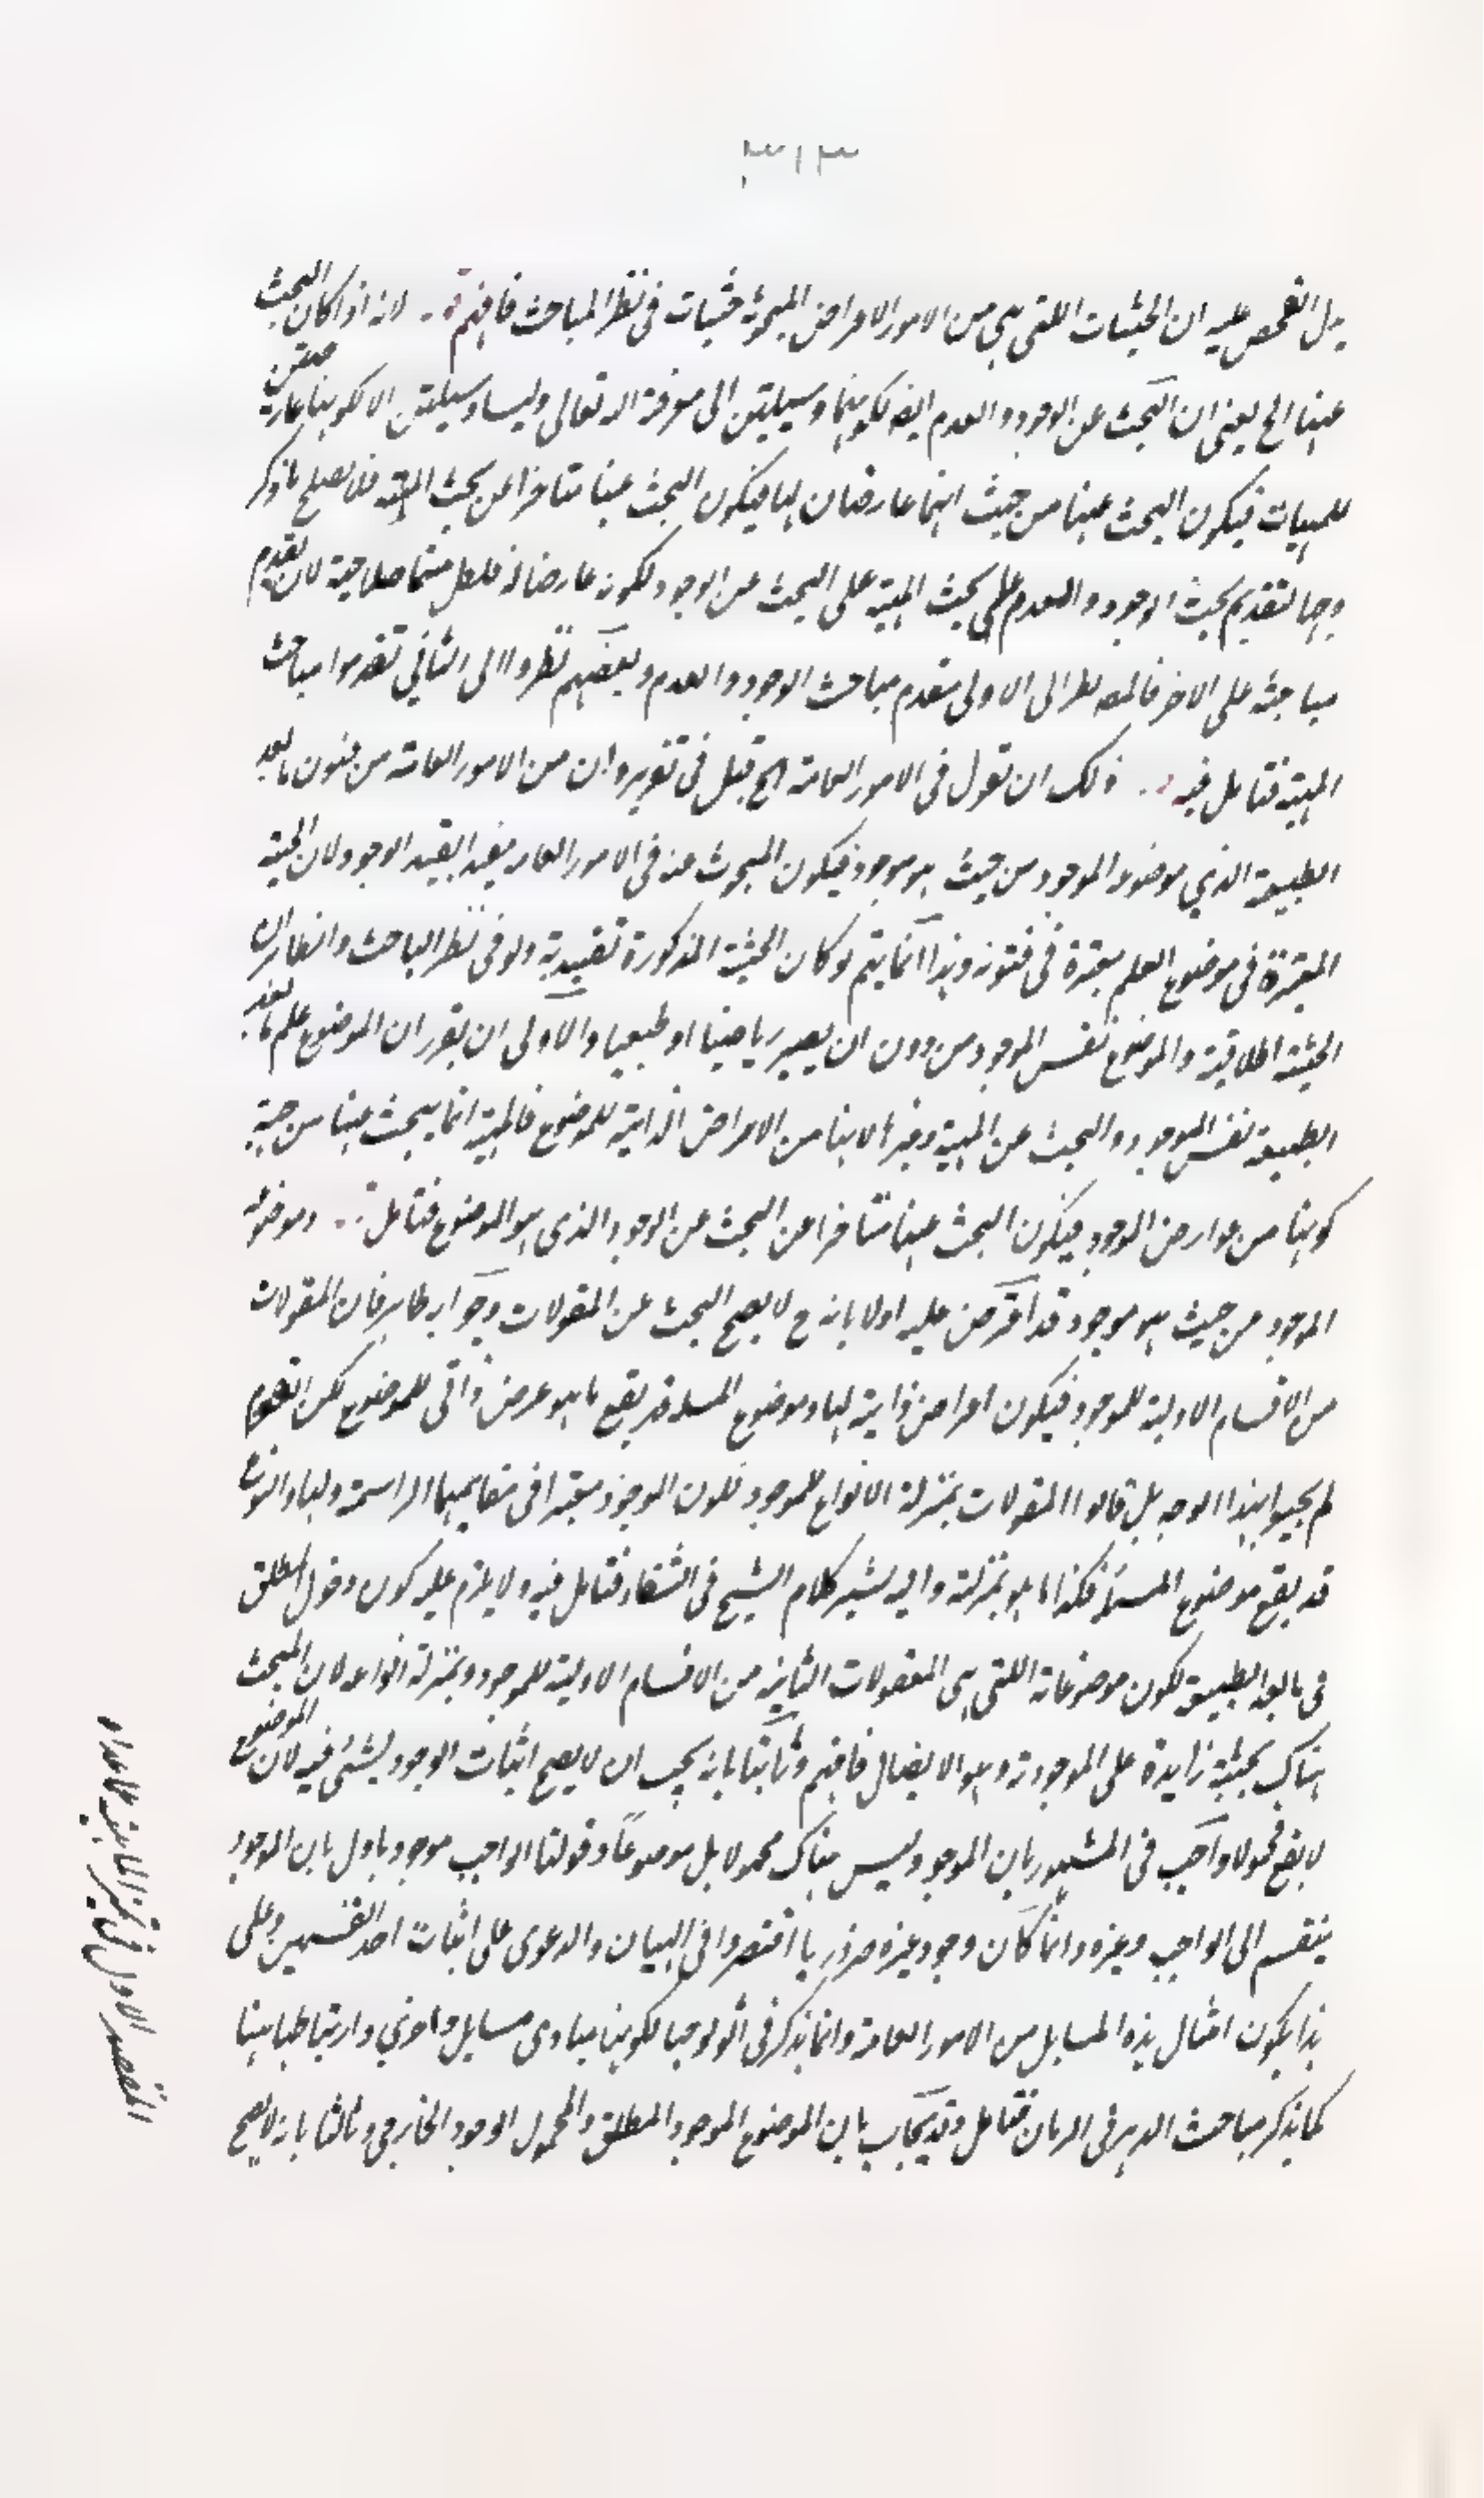 يدل الفحص عليه ان الحيثيات اللتى هى من الامور الاعراض المبحوثة حيثيات فى نظر المباحث فافهم . لانه اذا كان البحث
عنها الخ يعنى ان البحث عن الوجود والعدم ايضا لكونهما وسيلتين الى معرفة الله تعالى وليسا وسيلتين الا لكونهما عارضتين
للمهيات فيكون البحث عنها من حيث انهما عارضان لها فيكون البحث عنها متاخرا عن بحث المهية فلا يصلح ما ذكر
وجها لتقديم بحث الوجود والعدم على بحث المهية على البحث عن الوجود لكونه عارضا له فلعل منهما صلاحية لان تقدم
مباحثه على الاخر فالمص نظر الى الاولى فقدم مباحث الوجود والعدم وبعضهم نظروا الى الثانى تقدموا مباحث
المهية فتامل فيه . ولك ان تقول فى الامور العامة الخ قيل فى تقريره ان من الامور العامة من فنون ما بعد
الطبيعة الذى موضوعه الموجود من حيث هو موجود فيكون المبحوث عنه فى الامور العامة مقيدا بقيد الوجود لان الحيثية
المعتبرة فى موضوع العلم معتبرة فى فنونه وهذا انما يتم لو كان الحيثية المذكورة تقييدية ولو فى نظر الباحث والظاهر ان
الحيثية اطلاقية والموضوع نفس الموجود من دون ان يصير رياضيا او طبيعيا والاولى ان يقرر ان الموضوع علم ما بعد
الطبيعة نفس الموجود والبحث عن المهية وغيرها لانها من الاعراض الذاتية للموضوع فالمهية انما يبحث عنها من جهة
كونها من عوارض الموجود فيكون البحث عنها متاخرا عن البحث عن الوجود الذى هو الموضوع فتامل . وموضوعه
الموجود من حيث هو موجود قد اعترض عليه اولا بانه ح لا يصح البحث عن المقولات وجوابه ظاهر فان المقولات
من الاقسام الاولية للموجود فيكون اعراض ذاتية لها وموضوع المسئلة قد يقع ما هو عرض ذاتى للموضوع لكن القوم
لم يجيبوا بهذا الوجه بل قالوا المقولات بمنزلة الانواع للموجود لكون الموجود معتبرا فى مفاهيمها الراسمة ولها والنوع
قد يقع موضوع المسئلة فكذا ما هو بمنزلته واليه يشير كلام الشيخ فى الشفاء فتامل فيه ولا يلزم عليه كون دخول المنطق
فى ما بعد الطبيعة لكون موضوعاته اللتى هى المعقولات الثانية من الاقسام الاولية للموجود وبمنزلة انواعه لان المبحث
هناك بحيثية زايدة على الموجودية وهو الايصال فافهم وثانيا بانه يجب ان لا يصح اثبات الوجود لشئ فيه لان الموضوع
لا يقع محمولا واجيب فى المشهور بان الموجود ليس هناك محمولا بل موضوعا وقولنا الواجب موجود ياول بان الموجود
ينقسم الى الواجب وغيره وانما كان وجود غيره ضروريا اقتصروا فى البيان والدعوى على اثبات احد القسمين وعلى
هذا يكون امثال هذه المسايل من الامور العامة وانما يذكر فى اثولوجيا لكونها مبادى مسايل اخرى وارتباطها بها
كما يذكر مباحث الدهر فى الزمان فتامل وقد يجاب بان الموضوع الموجود المطلق والمحمول الوجود الخارجى وثالثا بانه لا يصح
المقصد الاول